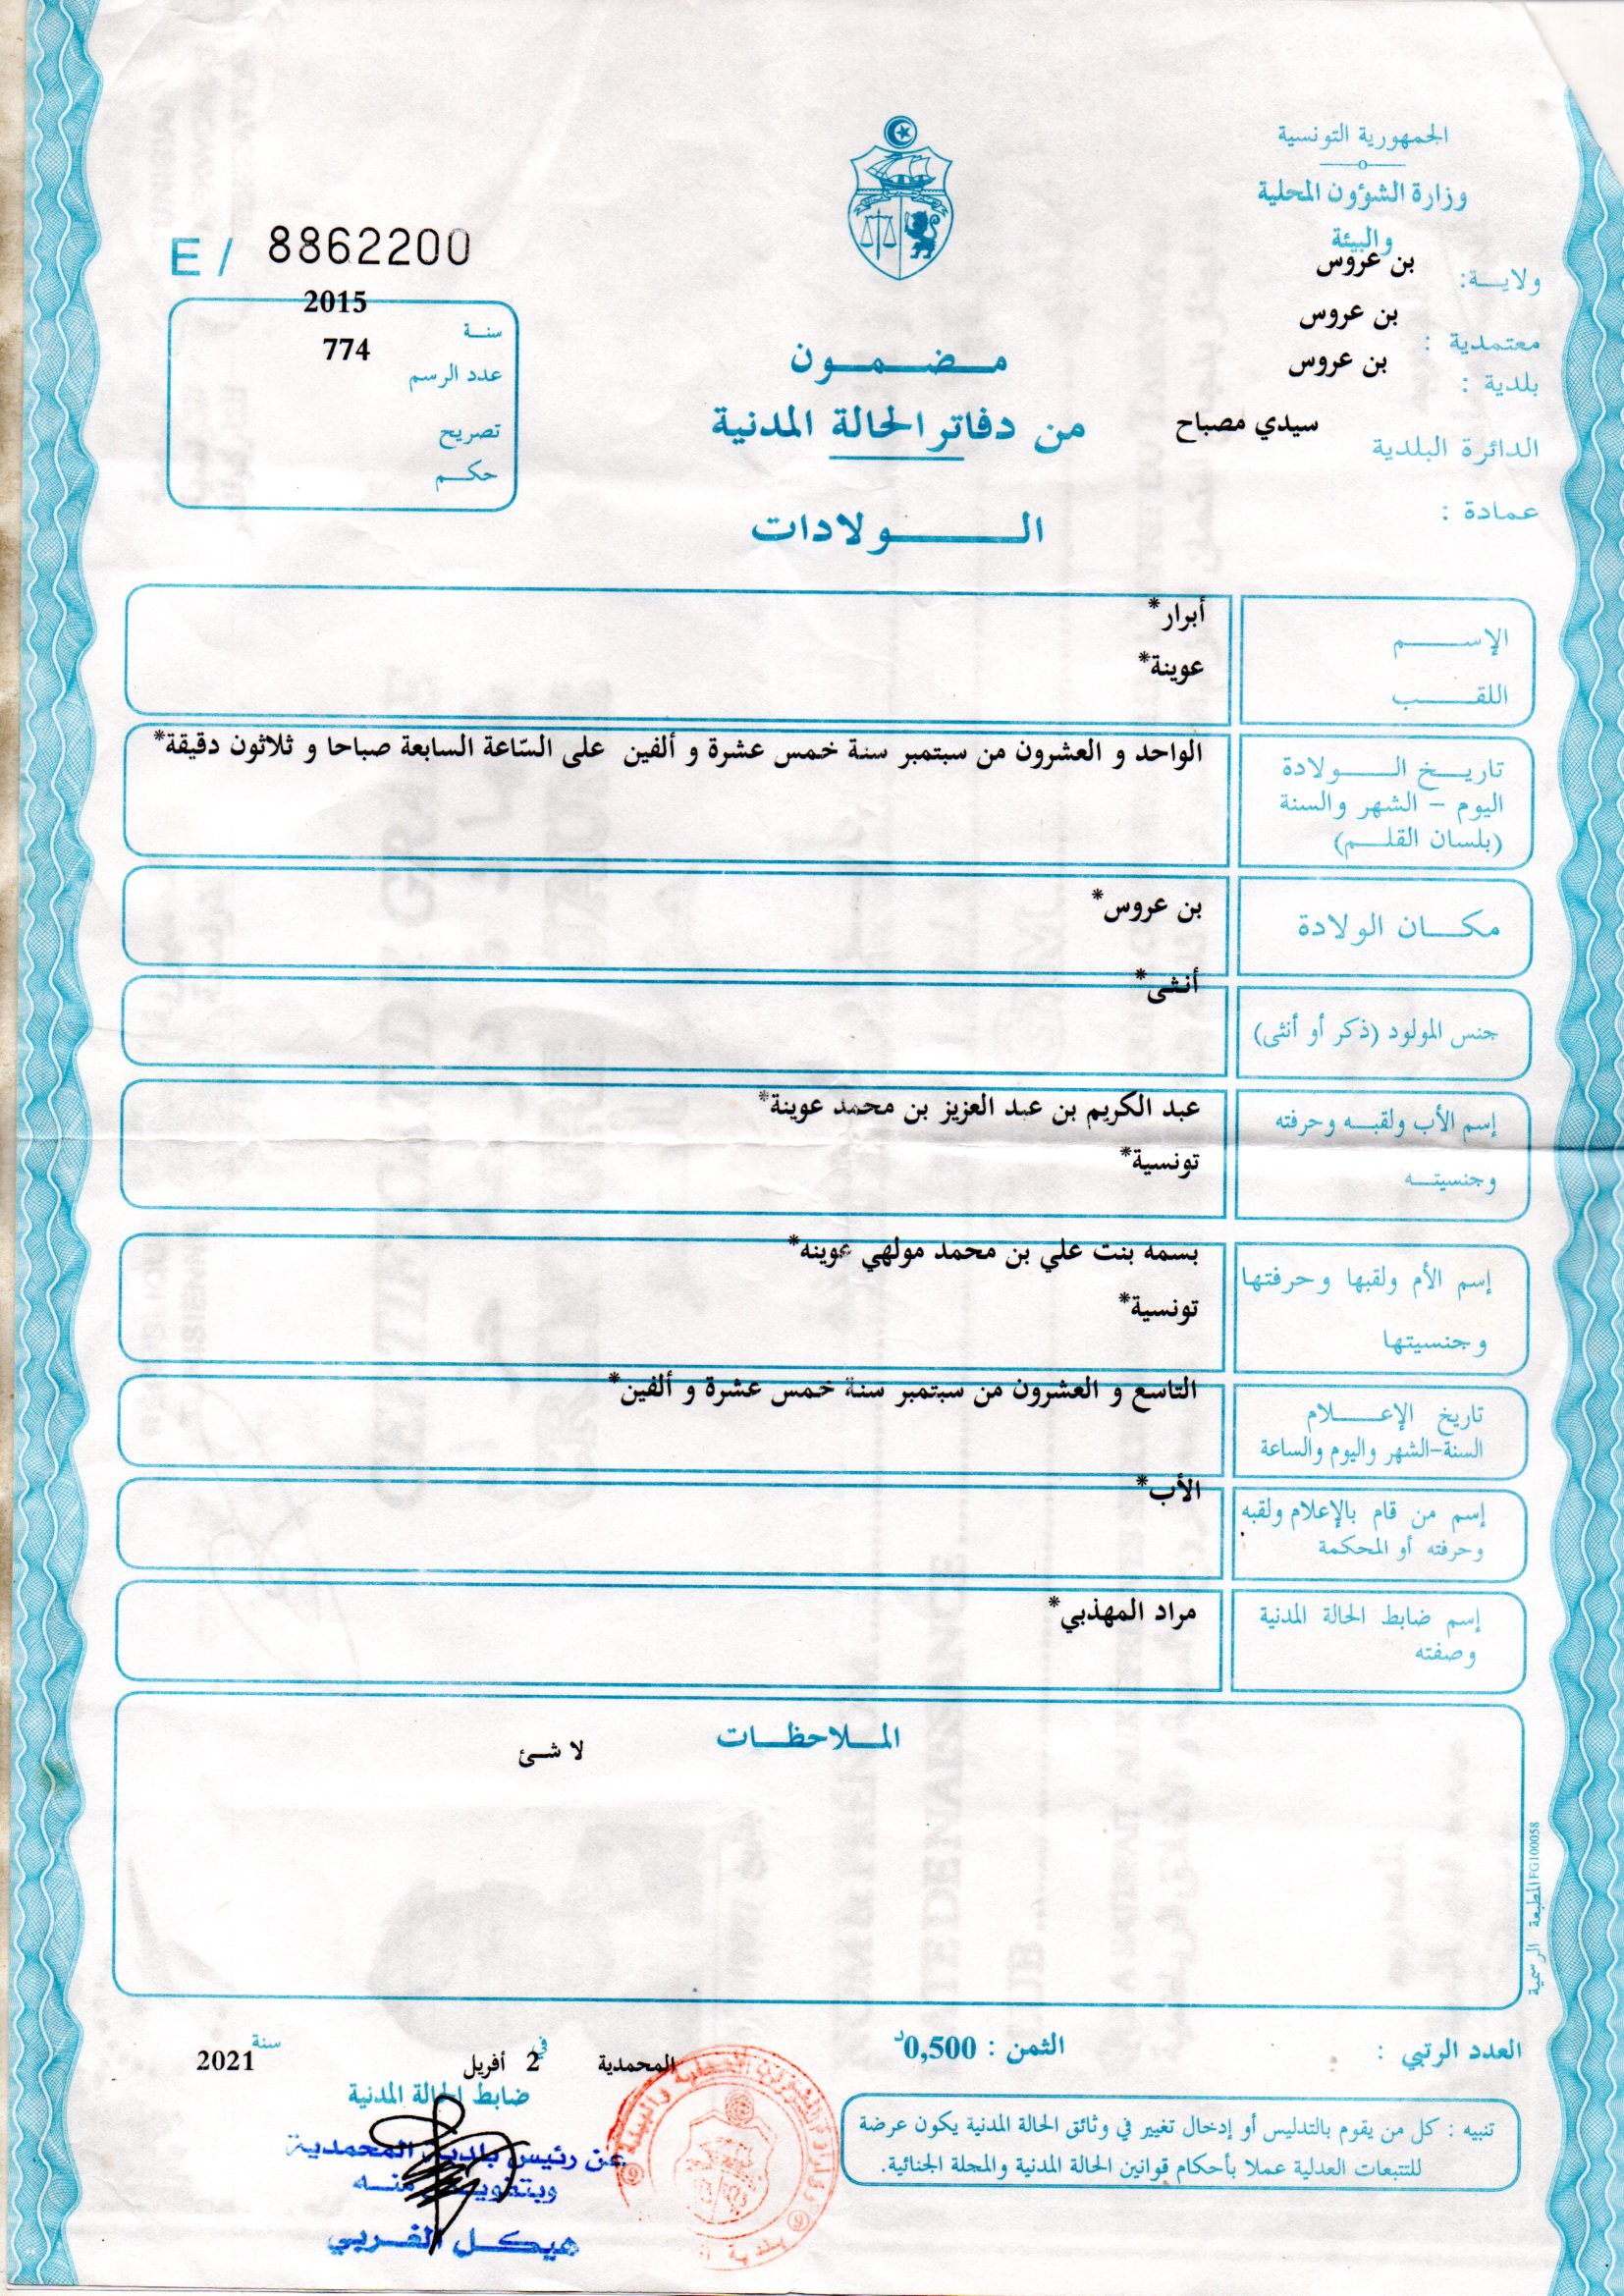 الجمهورية التونسية
وزارة الشؤون المحلية
والبيئة
ولايـــة: بن عروس
معتمدية : بن عروس
بلدية : بن عروس
الدائرة البلدية سيدي مصباح
عمادة :
مـضـمـون
من دفاتر الحالة المدنية
الـــولادات
E / 8862200
سنـــة 2015
عدد الرسم 774
تصريح
حكـــم
الإســـــم أبرار*
اللقـــــب عوينة*
تاريـــخ الـــــولادة الواحد و العشرون من سبتمبر سنة خمس عشرة و ألفين على السّاعة السابعة صباحا و ثلاثون دقيقة*
اليوم - الشهر والسنة
(بلسان القلـــم)
مكـــان الولادة بن عروس*
جنس المولود (ذكر أو أنثى) أنثى*
إسم الأب ولقبـــه وحرفته عبد الكريم بن عبد العزيز بن محمد عوينة*
وجنسيتـــه تونسية*
إسم الأم ولقبها وحرفتها بسمه بنت علي بن محمد مولهي عوينه*
وجنسيتها تونسية*
تاريخ الإعـــــلام التاسع و العشرون من سبتمبر سنة خمس عشرة و ألفين*
السنة-الشهر واليوم والساعة
إسم من قام بالإعلام ولقبه الأب*
وحرفته أو المحكمة
إسم ضابط الحالة المدنية مراد المهذبي*
وصفته
المـــلاحظـــات
لا شئ
المطبعة الرسمية FG100058
العدد الرتبي :
الثمن : 0,500د
المحمدية في 2 أفريل سنة 2021
ضابط الحالة المدنية
عن رئيس بلدية المحمدية
وبتفويض منـــه
هيكـــل الغـــربي
تنبيه : كل من يقوم بالتدليس أو إدخال تغيير في وثائق الحالة المدنية يكون عرضة
للتتبعات العدلية عملا بأحكام قوانين الحالة المدنية والمجلة الجنائية.